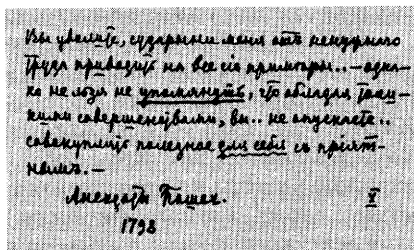 Вы уволите, сударыни меня отъ ненужнаго
труда приводить на все сіе примѣры.. — одна-
ко не льзя не упомянуть, что обладая таки-
ми совершенствами, вы.. не опускаете..
совокуплять полезное для себя съ пріят-
нымъ. —
Анекдоты
1798